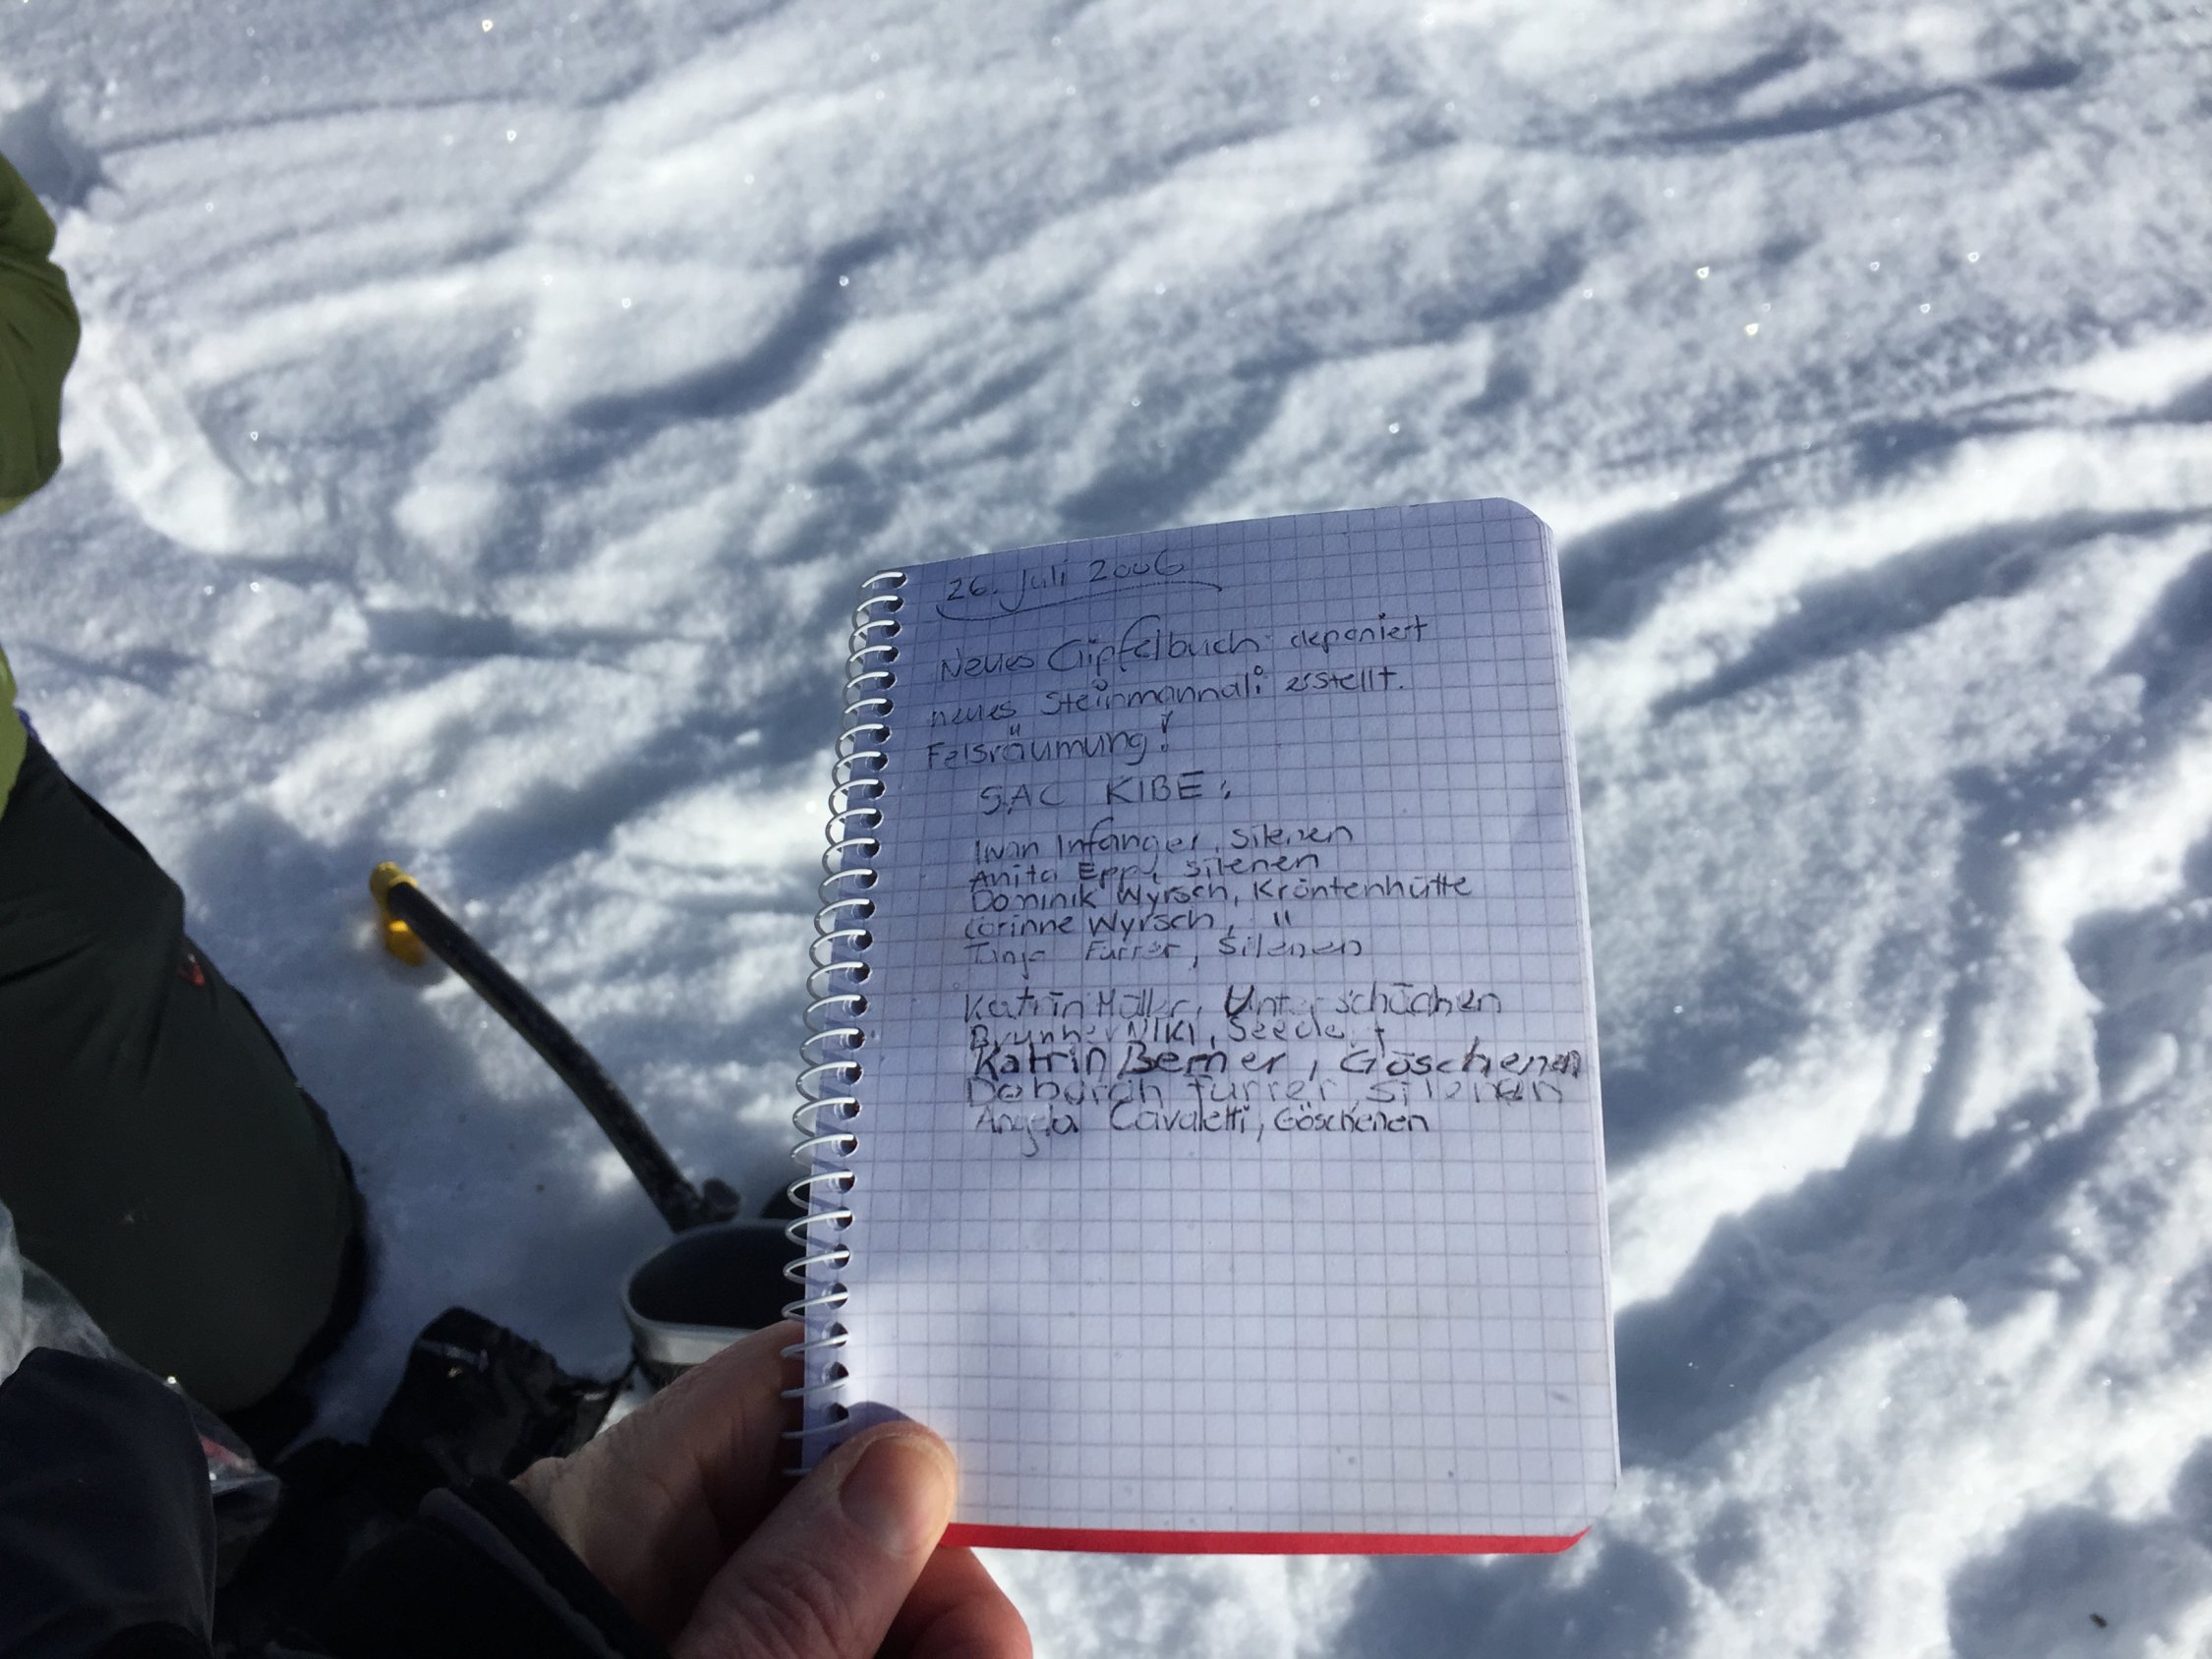 26. Juli 2006
Neues Gipfelbuch deponiert
neues Steinmannali erstellt.
Felsräumung!
SAC KIBE:
Iwan Infanger, Silenen
Anita Epp, Silenen
Dominik Wyrsch, Kröntenhütte
Corinne Wyrsch, "
Furrer, Silenen
Katrin Müller, Unterschächen
Brunner Niki, Seedorf
Katrin Berner, Göschenen
Deborah Furrer, Silenen
Angela Cavaletti, Göschenen